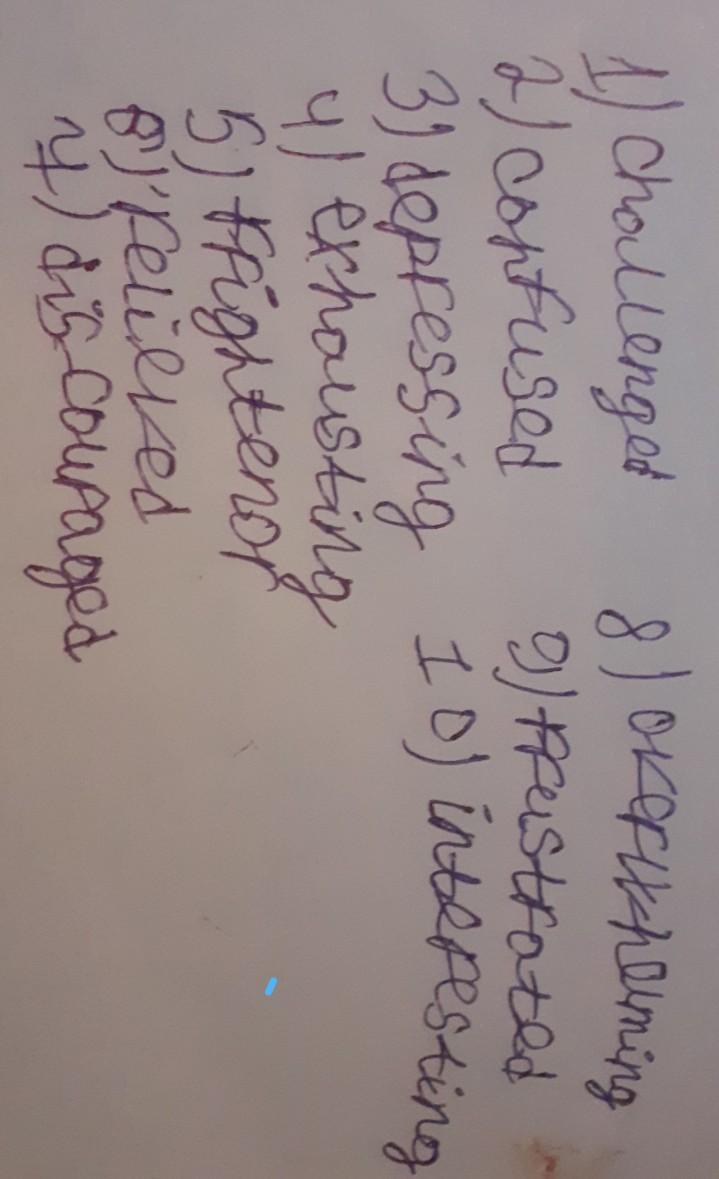 1) challenged
2) confused
3) depressing
4) exhausting
5) frightenor
6) relieved
7) discouraged
8) overwheming
9) frustrated
10) interesting